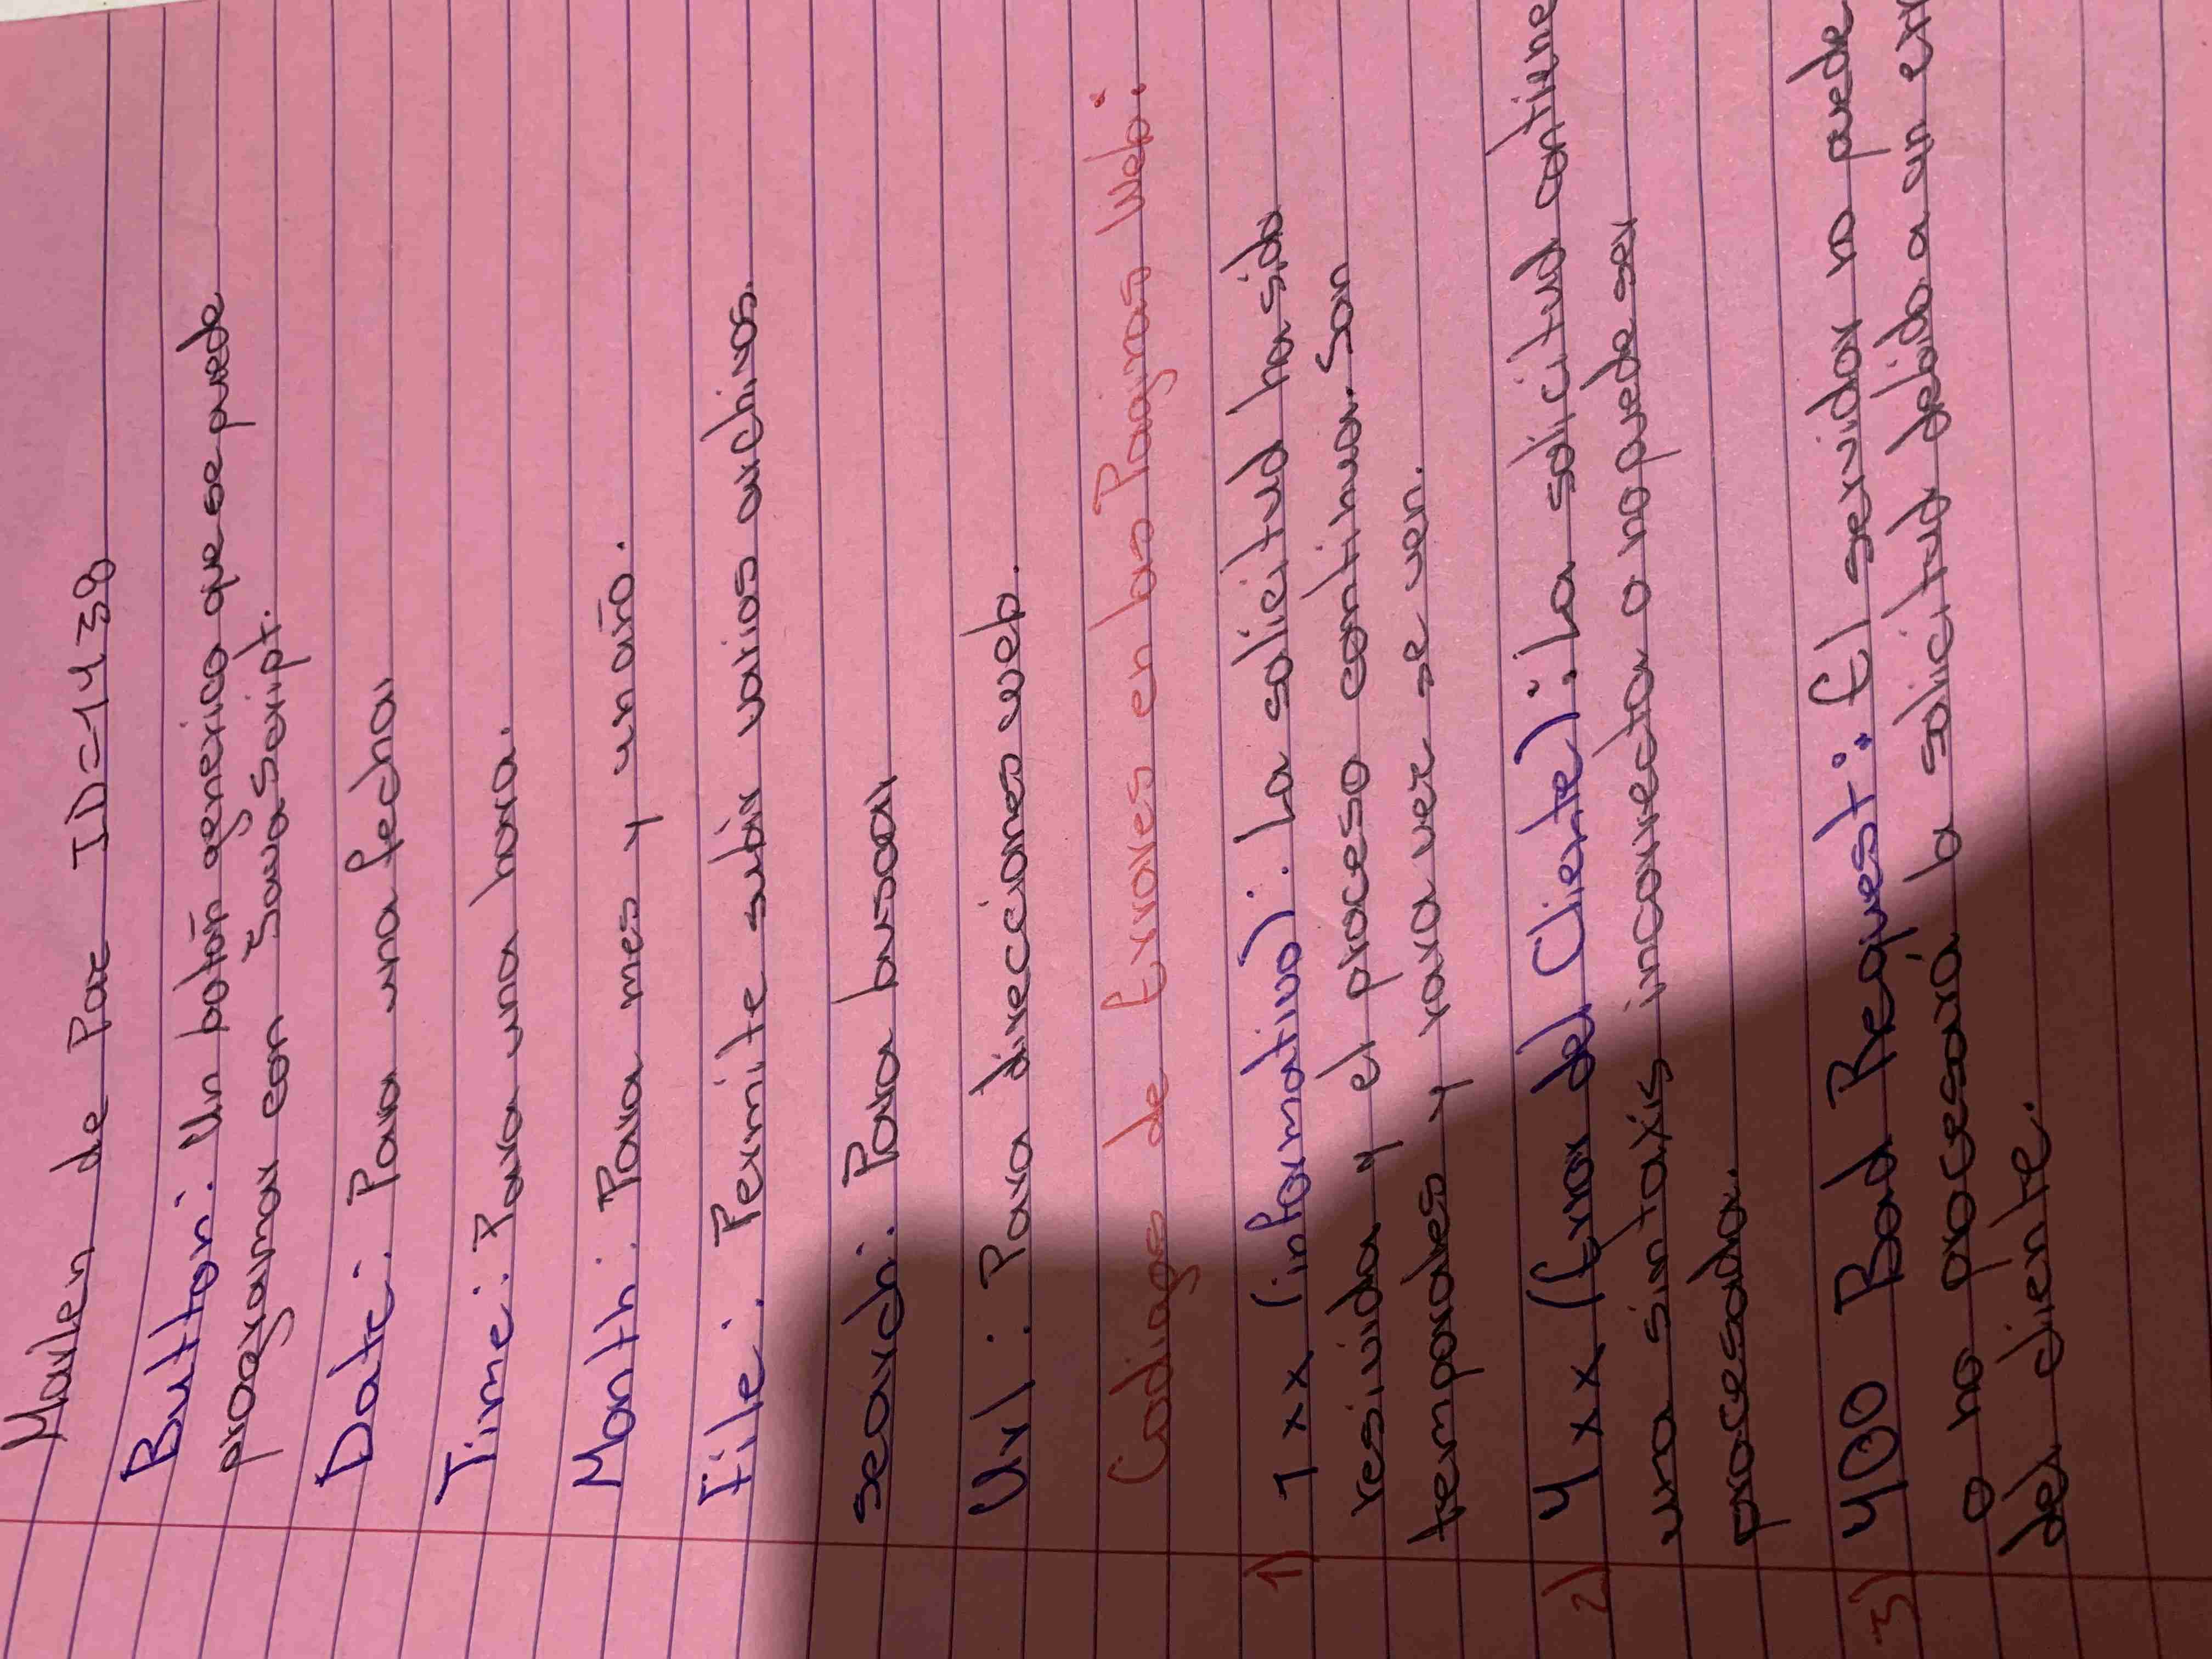 Marlen de Paz ID=1438
Button: Un botón generico que se puede
programar con JavaScript.
Date: Para una fecha
Time: Para una hora.
Month: Para mes y un año.
File: Permite subir varios archivos.
search: Para buscar
Url: Para direcciones web.
Codigos de Errores en las Paginas Web:
1) 1xx (informativo): La solicitud ha sido
resivida y el proceso continua. Son
temporales y rara vez se ven.
2) 4xx (Error del Cliente): La solicitud contiene
una sintaxis incorrecta o no puede ser
procesada.
3) 400 Bad Request: El servidor no puede
o no procesará la solicitud debido a un err
del cliente.